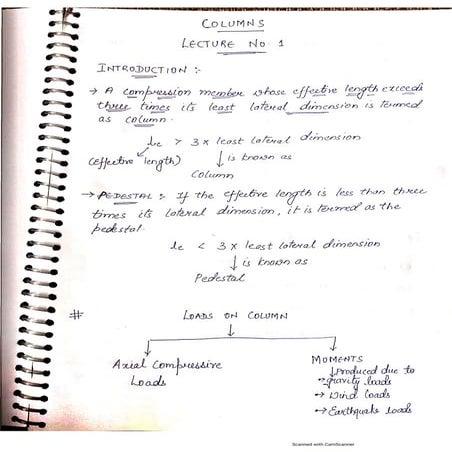 COLUMNS
LECTURE NO 1
INTRODUCTION :-
→ A compression member whose effective length exceeds
three times its least lateral dimension is termed
as column.
le > 3 x least lateral dimension
(effective length) ↓ is known as
Column
→ PEDESTAL : If the effective length is less than three
times its lateral dimension, it is termed as the
pedestal.
le < 3 x least lateral dimension
↓ is known as
Pedestal
# LOADS ON COLUMN
Axial Compressive
Loads
MOMENTS
↓ Produced due to
→ gravity loads
→ Wind loads
→ Earthquake loads
Scanned with CamScanner